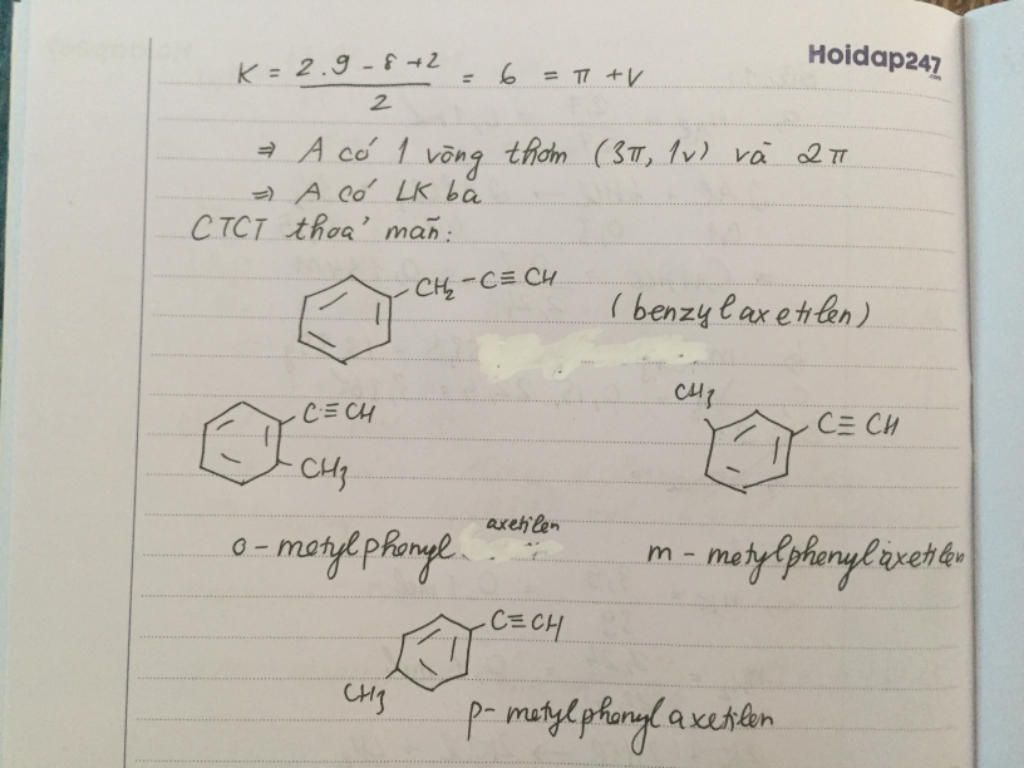 Hoidap247.com
K = (2.9 - 8 + 2)/2 = 6 = π + v
⇒ A có 1 vòng thơm (3π, 1v) và 2π
⇒ A có LK ba
CTCT thoả mãn:
CH2 - C≡CH
(benzylaxetilen)
C≡CH
CH3
CH3
C≡CH
o - metylphenyl axetilen
m - metylphenylaxetilen
C≡CH
CH3
p- metylphenylaxetilen